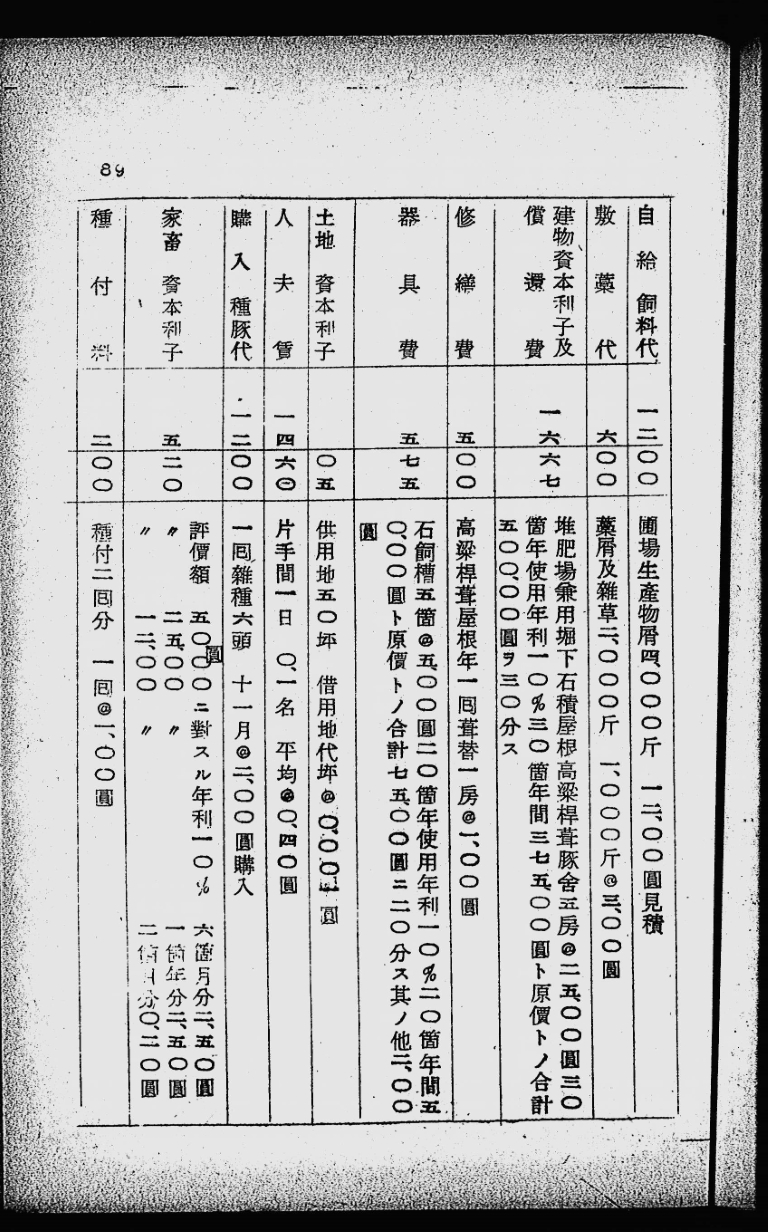 89
自給飼料代 一二〇〇 圃場生産物屑四、〇〇〇斤 一二、〇〇圓見積
敷藁代 六〇〇 藁屑及雜草二、〇〇〇斤 一、〇〇〇斤@三、〇〇圓
建物資本利子及
償還費 一六六七 堆肥場兼用堀下石積屋根高粱桿葺豚舍五房@二五、〇〇圓三〇
箇年使用年利一〇%三〇箇年間三七五、〇〇圓ト原價トノ合計
五〇〇、〇〇圓ヲ三〇分ス
修繕費 五〇〇 高粱桿葺屋根年一囘葺替一房@一、〇〇圓
器具費 五七五 石飼槽五箇@五、〇〇圓二〇箇年使用年利一〇%二〇箇年間五
〇、〇〇圓ト原價トノ合計七五、〇〇圓ニ二〇分ス其ノ他二、〇〇
圓
土地資本利子 〇五 供用地五〇坪 借用地代坪@〇、〇〇一圓
人夫賃 一四六〇 片手間一日 〇、一名 平均@〇、四〇圓
購入種豚代 一二〇〇 一囘雜種六頭 十一月@二、〇〇圓購入
家畜資本利子 五二〇 評價額 五〇、〇〇圓ニ對スル年利一〇% 六箇月分二、五〇圓
〃 二五、〇〇 〃 一箇年分二、五〇圓
〃 一二、〇〇 〃 二箇月分〇、二〇圓
種付料 二〇〇 種付二囘分 一囘@一、〇〇圓